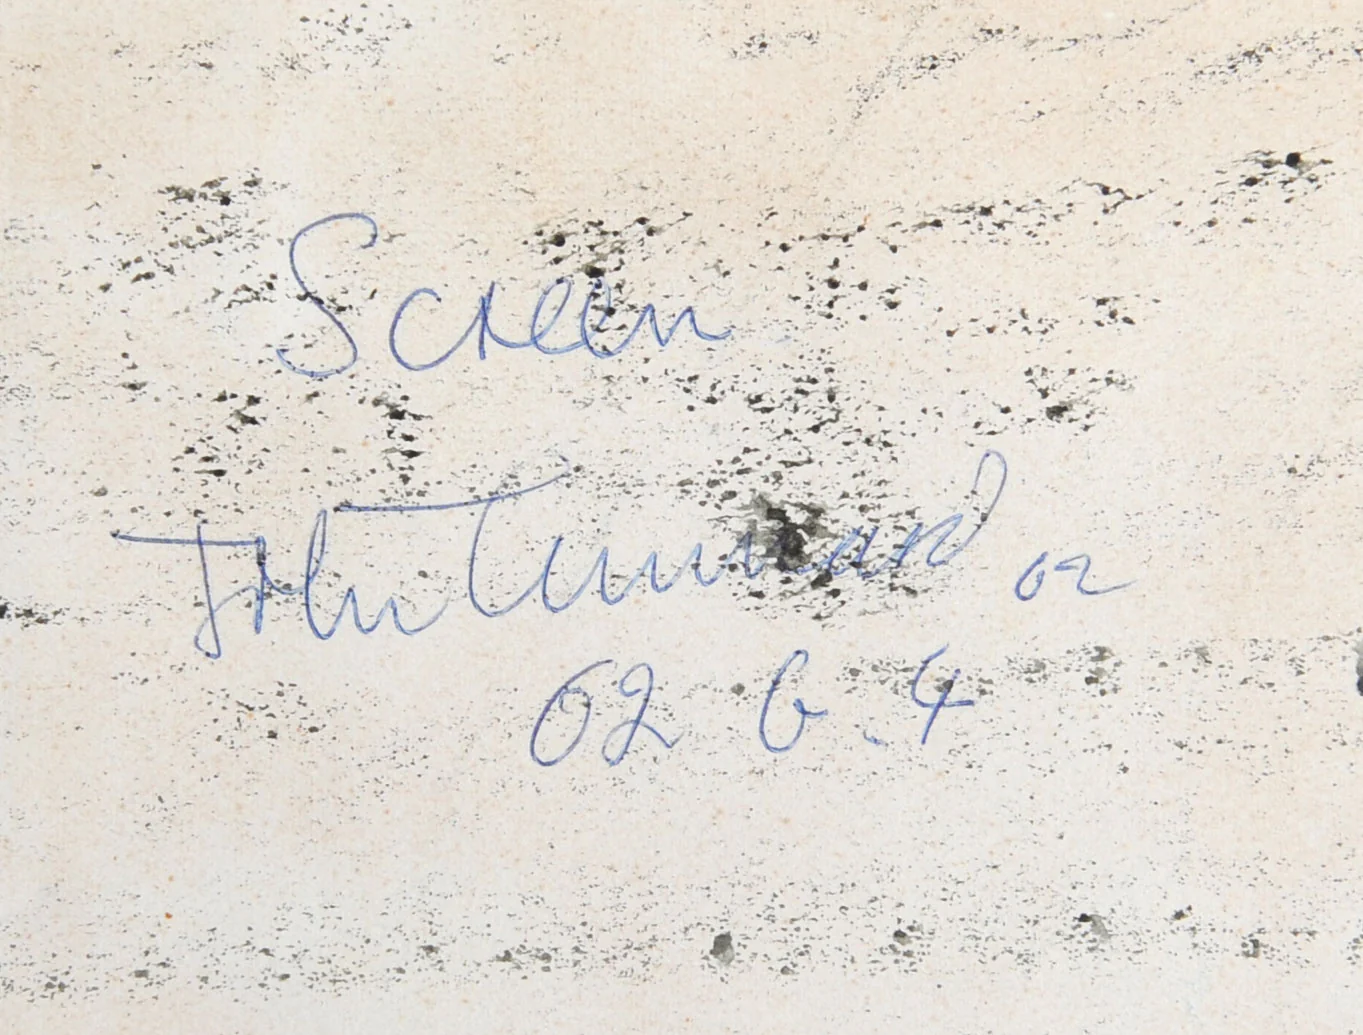 Screen
John Tunnard 02
02 G.4